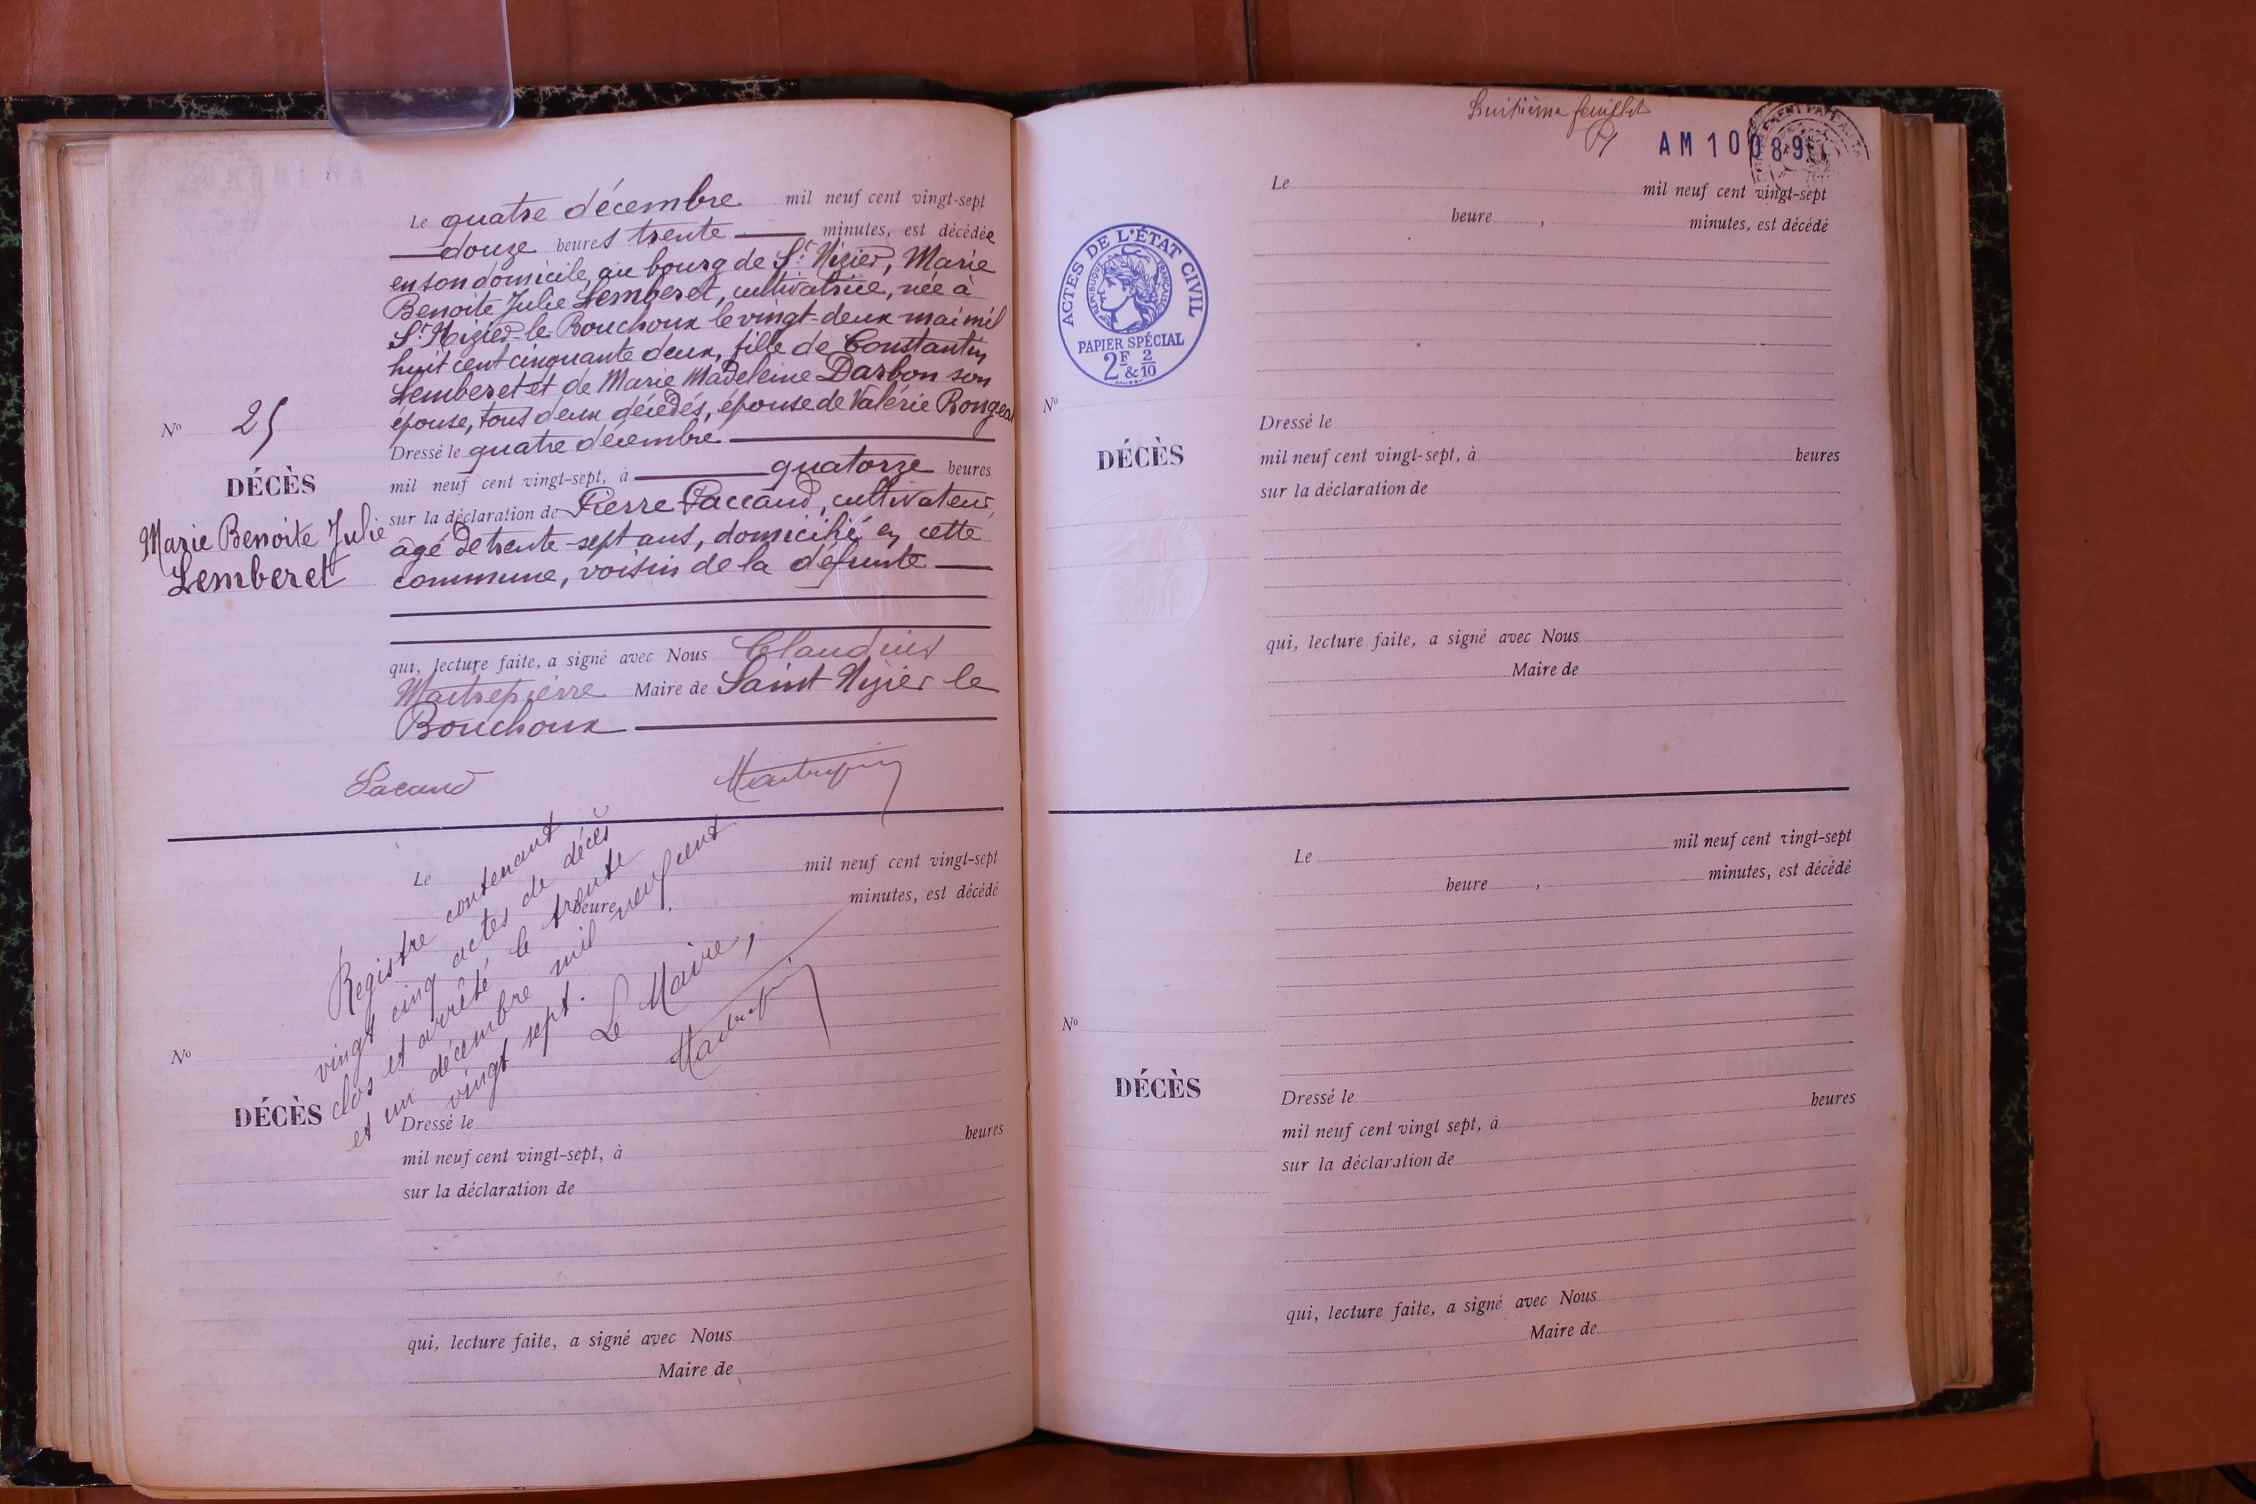 Le quatre décembre mil neuf cent vingt-sept
douze heures trente minutes, est décédée
en son domicile, au bourg de St Nizier, Marie
Benoite Julie Lemberet, cultivatrice, née à
St Nizier-le-Bouchoux le vingt-deux mai mil
huit cent cinquante deux, fille de Constantin
Lemberet et de Marie Madeleine Darbon son
épouse, tous deux décédés, épouse de Valérie
Dressé le quatre décembre
mil neuf cent vingt-sept, à quatorze heures
sur la déclaration de Pierre Paccaud, cultivateur,
âgé de trente-sept ans, domicilié en cette
commune, voisin de la défunte
qui, lecture faite, a signé avec Nous Claudius
Maitrepierre Maire de Saint Nizier le
Bouchoux
No 25
DÉCÈS
Marie Benoite Julie
Lemberet
Pacaud
Le mil neuf cent vingt-sept
heure , minutes, est décédé
Registre contenant
vingt cinq actes de décès
clos et arrêté le trente
et un décembre mil neuf cent
vingt sept.
Le Maire,
No
DÉCÈS
Dressé le
mil neuf cent vingt-sept, à heures
sur la déclaration de
qui, lecture faite, a signé avec Nous
Maire de
huitième feuillet
AM 10089
Le mil neuf cent vingt-sept
heure , minutes, est décédé
ACTES DE L'ÉTAT CIVIL
RÉPUBLIQUE FRANÇAISE
PAPIER SPÉCIAL
2F & 2/10
No
DÉCÈS
Dressé le
mil neuf cent vingt-sept, à heures
sur la déclaration de
qui, lecture faite, a signé avec Nous
Maire de
Le mil neuf cent vingt-sept
heure , minutes, est décédé
No
DÉCÈS
Dressé le
mil neuf cent vingt sept, à heures
sur la déclaration de
qui, lecture faite, a signé avec Nous
Maire de